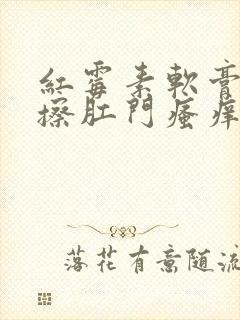 紅霉素軟膏
擦肛門瘙痒
落花有意随流